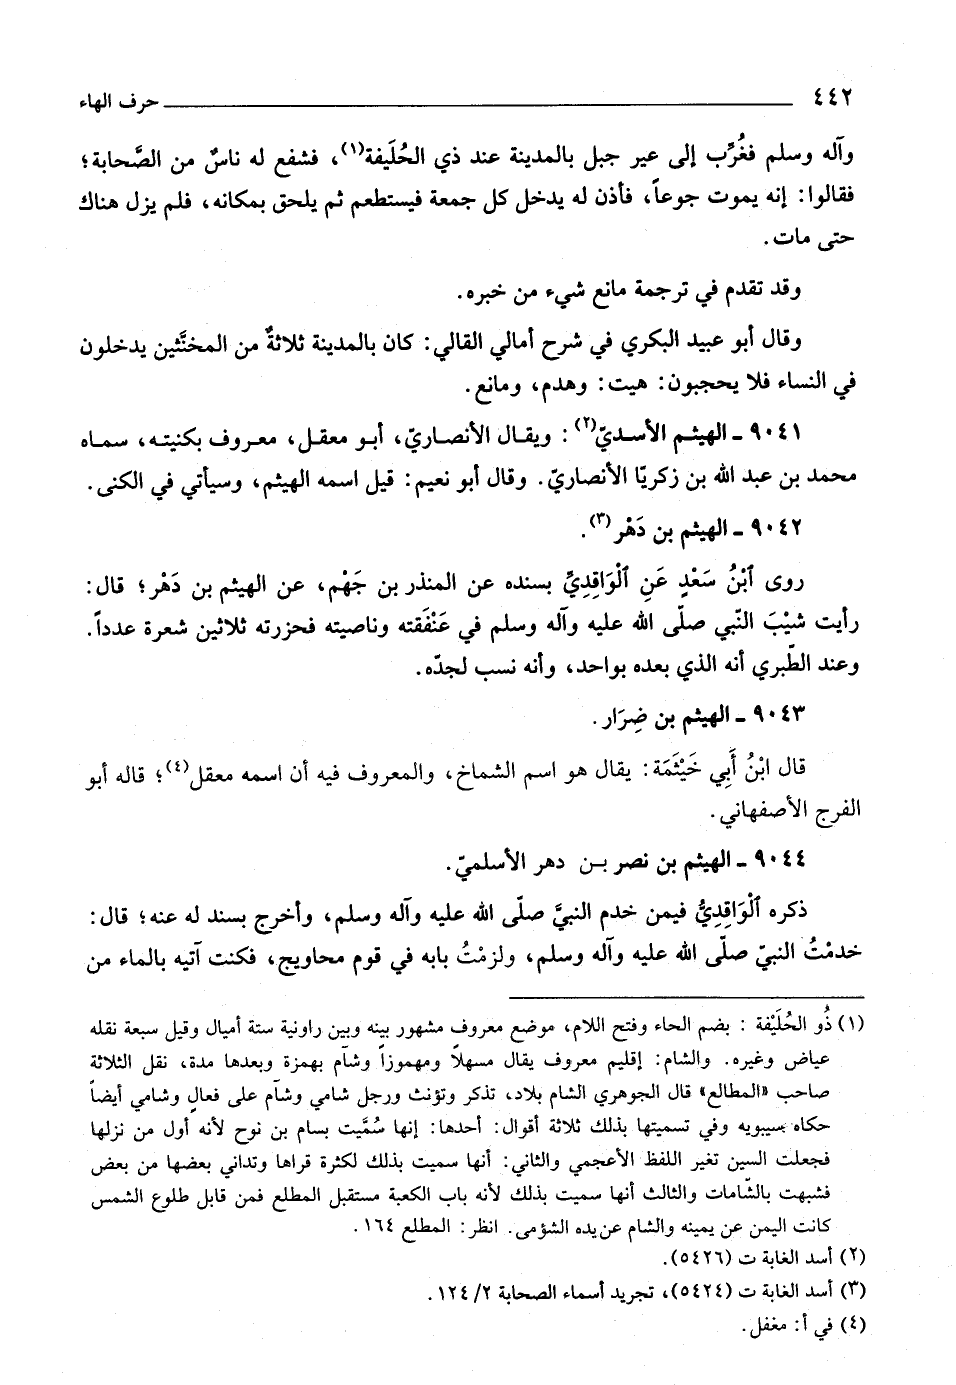 ٤٤٢ حرف الهاء
وآله وسلم فغُرِّب إلى عير جبل بالمدينة عند ذي الحُلَيفة(١)، فشفع له ناسٌ من الصَّحابة؛
فقالوا: إنه يموت جوعاً، فأذن له يدخل كل جمعة فيستطعم ثم يلحق بمكانه، فلم يزل هناك
حتى مات.
وقد تقدم في ترجمة مانع شيء من خبره.
وقال أبو عبيد البكري في شرح أمالي القالي: كان بالمدينة ثلاثةٌ من المخنَّثين يدخلون
في النساء فلا يحجبون: هيت: وهدم، ومانع.
٩٠٤١ ـ الهيثم الأسديّ(٢): ويقال الأنصاريّ، أبو معقل، معروف بكنيته، سماه
محمد بن عبد الله بن زكريّا الأنصاريّ. وقال أبو نعيم: قيل اسمه الهيثم، وسيأتي في الكنى.
٩٠٤٢ ـ الهيثم بن دَهْر(٣).
روى ٱبْنُ سَعْدٍ عَنِ ٱلْوَاقِدِيِّ بسنده عن المنذر بن جَهْم، عن الهيثم بن دَهْر؛ قال:
رأيت شيْبَ النّبي صلّى الله عليه وآله وسلم في عَنْفَقته وناصيته فحزرته ثلاثين شعرة عدداً.
وعند الطّبري أنه الذي بعده بواحد، وأنه نسب لجدّه.
٩٠٤٣ ـ الهيثم بن ضِرَار.
قال ابْنُ أَبِي خَيْثَمَة: يقال هو اسم الشماخ، والمعروف فيه أن اسمه معقل(٤)؛ قاله أبو
الفرج الأصفهاني.
٩٠٤٤ ـ الهيثم بن نصر بن دهر الأسلميّ.
ذكره ٱلْوَاقِدِيُّ فيمن خدم النبيَّ صلّى الله عليه وآله وسلم، وأخرج بسند له عنه؛ قال:
خدمْتُ النبيّ صلّى الله عليه وآله وسلم، ولزمْتُ بابه في قوم محاويج، فكنت آتيه بالماء من
(١) ذُو الحُلَيْفة : بضم الحاء وفتح اللام، موضع معروف مشهور بينه وبين راونية ستة أميال وقيل سبعة نقله
عياض وغيره. والشام: إقليم معروف يقال مسهلاً ومهموزاً وشآم بهمزة وبعدها مدة، نقل الثلاثة
صاحب «المطالع» قال الجوهري الشام بلاد، تذكر وتؤنث ورجل شامي وشآم على فعالٍ وشامي أيضاً
حكاه سيبويه وفي تسميتها بذلك ثلاثة أقوال: أحدها: إنها سُمَّيت بسام بن نوح لأنه أول من نزلها
فجعلت السين تغير اللفظ الأعجمي والثاني: أنها سميت بذلك لكثرة قراها وتداني بعضها من بعض
فشبهت بالشّامات والثالث أنها سميت بذلك لأنه باب الكعبة مستقبل المطلع فمن قابل طلوع الشمس
كانت اليمن عن يمينه والشام عن يده الشؤمى. انظر: المطلع ١٦٤.
(٢) أسد الغابة ت (٥٤٢٦).
(٣) أسد الغابة ت (٥٤٢٤)، تجريد أسماء الصحابة ٢/ ١٢٤.
(٤) في أ: مغفل.